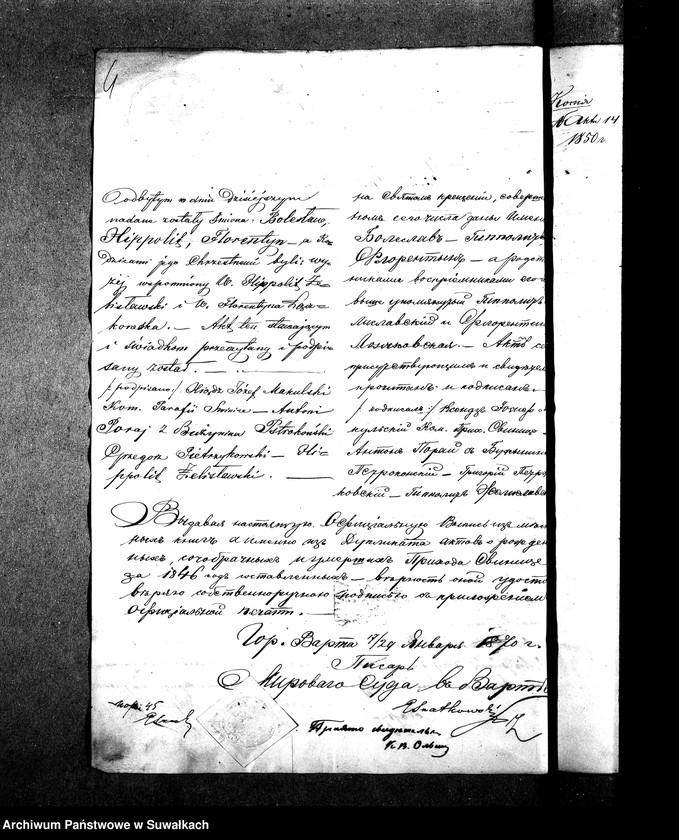 4
Kopia
Akt 14
1850 r.
Odbytym w dniu dzisiejszym
nadane zostały Imiona: Bolesław,
Hippolit, Florentyn — a Ro-
dzicami jego Chrzestnemi byli: wy-
żej wspomniony W. Hippolit Że-
lisławski i W. Florentyna
— Akt ten stawającym
i świadkom przeczytany i podpi-
sany został. —
/:podpisano:/ Xiądz Józef Makulski
Kom. Parafii — Antoni
Poraj z Burzynina Pstrokoński
Grzegorz Pietrzykowski — Hi-
ppolit Żelisławski. —
на Святомъ крещеніи, соверш
номъ сего числа даны Имен
Болеславъ — Гипполитъ
Флорентынъ — а родит
никами воспріемниками его
выше упомянутый Гипполитъ
лиславский и Флорентин
— Актъ с
присутствующимъ и свидѣтел
прочитанъ и подписанъ
/:подписали:/ Ксендзъ Іосифъ
кульский Ком. Прих.
Антонъ Порай съ
Пстроконский — Григорій Петр
ковский — Гипполитъ Желиславс
Выдавая настоящую Оффиціальную Выпись изъ
ныхъ книгъ а именно изъ Дупликата актовъ о рожден
ныхъ, сочобрачныхъ и умершихъ Прихода
за 1846 годъ составленныхъ — вѣрность оной удосто
вѣряю собственноручною подписью съ приложеніемъ
Оффиціальной печати. —
Гор. Варта 17/29 Января 1870 г.
Писарь
Мироваго Суда въ Вартѣ
Esnatkowski
45
Archiwum Państwowe w Suwałkach